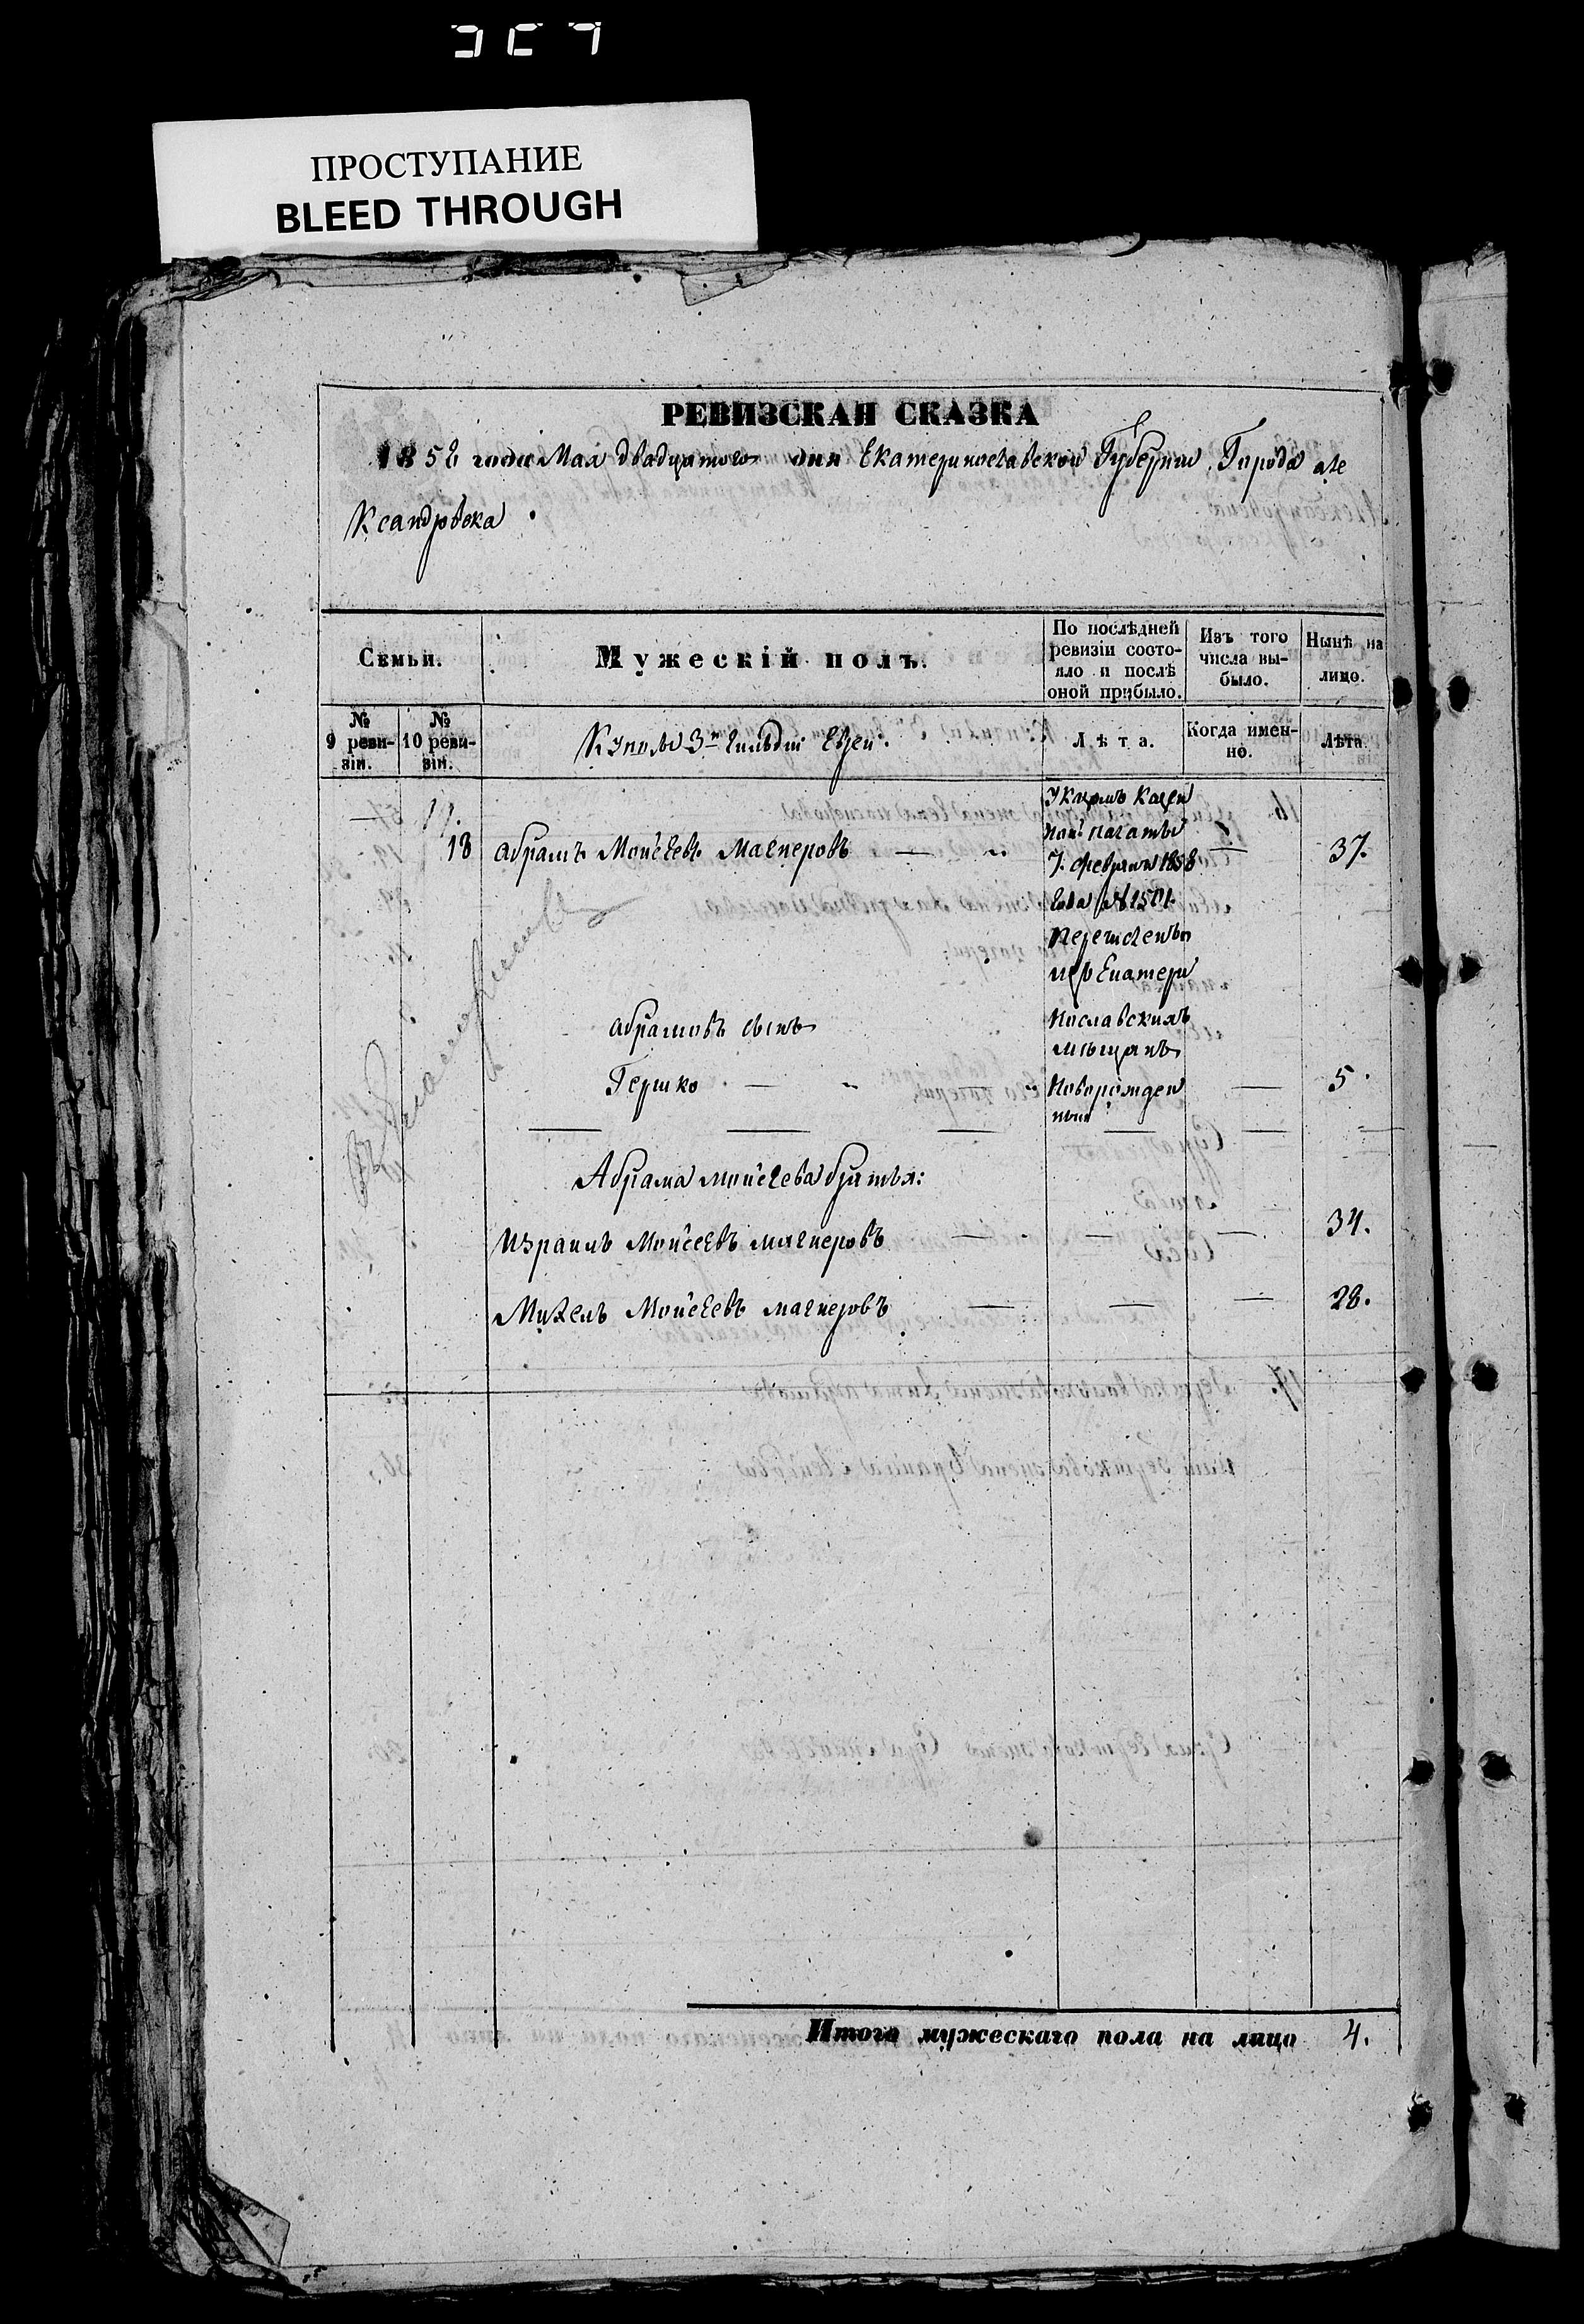 ПРОСТУПАНИЕ
BLEED THROUGH
РЕВИЗСКАЯ СКАЗКА
1858 года Мая двадцатого дня Екатеринославской Губернии, Города але
ксандровска
Семьи.
Мужескій полъ.
По послѣдней ревизіи состо-
яло и послѣ
оной прибыло.
Изъ того
числа вы-
было.
Нынѣ на
лицо.
№
9 реви-
зіи.
№
10 реви-
зіи.
Купцы 3й гильдіи Евреи.
Лѣта.
Когда имен-
но.
Лѣта.
17.
18 абрамъ Моисеевъ Магнеровъ 37.
Указомъ Казен
ной палаты
7. февраля 1858
года № 2501.
перечисленъ
изъ Екатери
нославскихъ
мѣщанъ
абрамовъ сынъ
Гершко Новорожден 5.
ный
Абрама моисеева братья:
Израиль Моисеевъ магнеровъ 34.
Михель Моисеевъ магнеровъ 28.
Итого мужескаго пола на лицо 4.